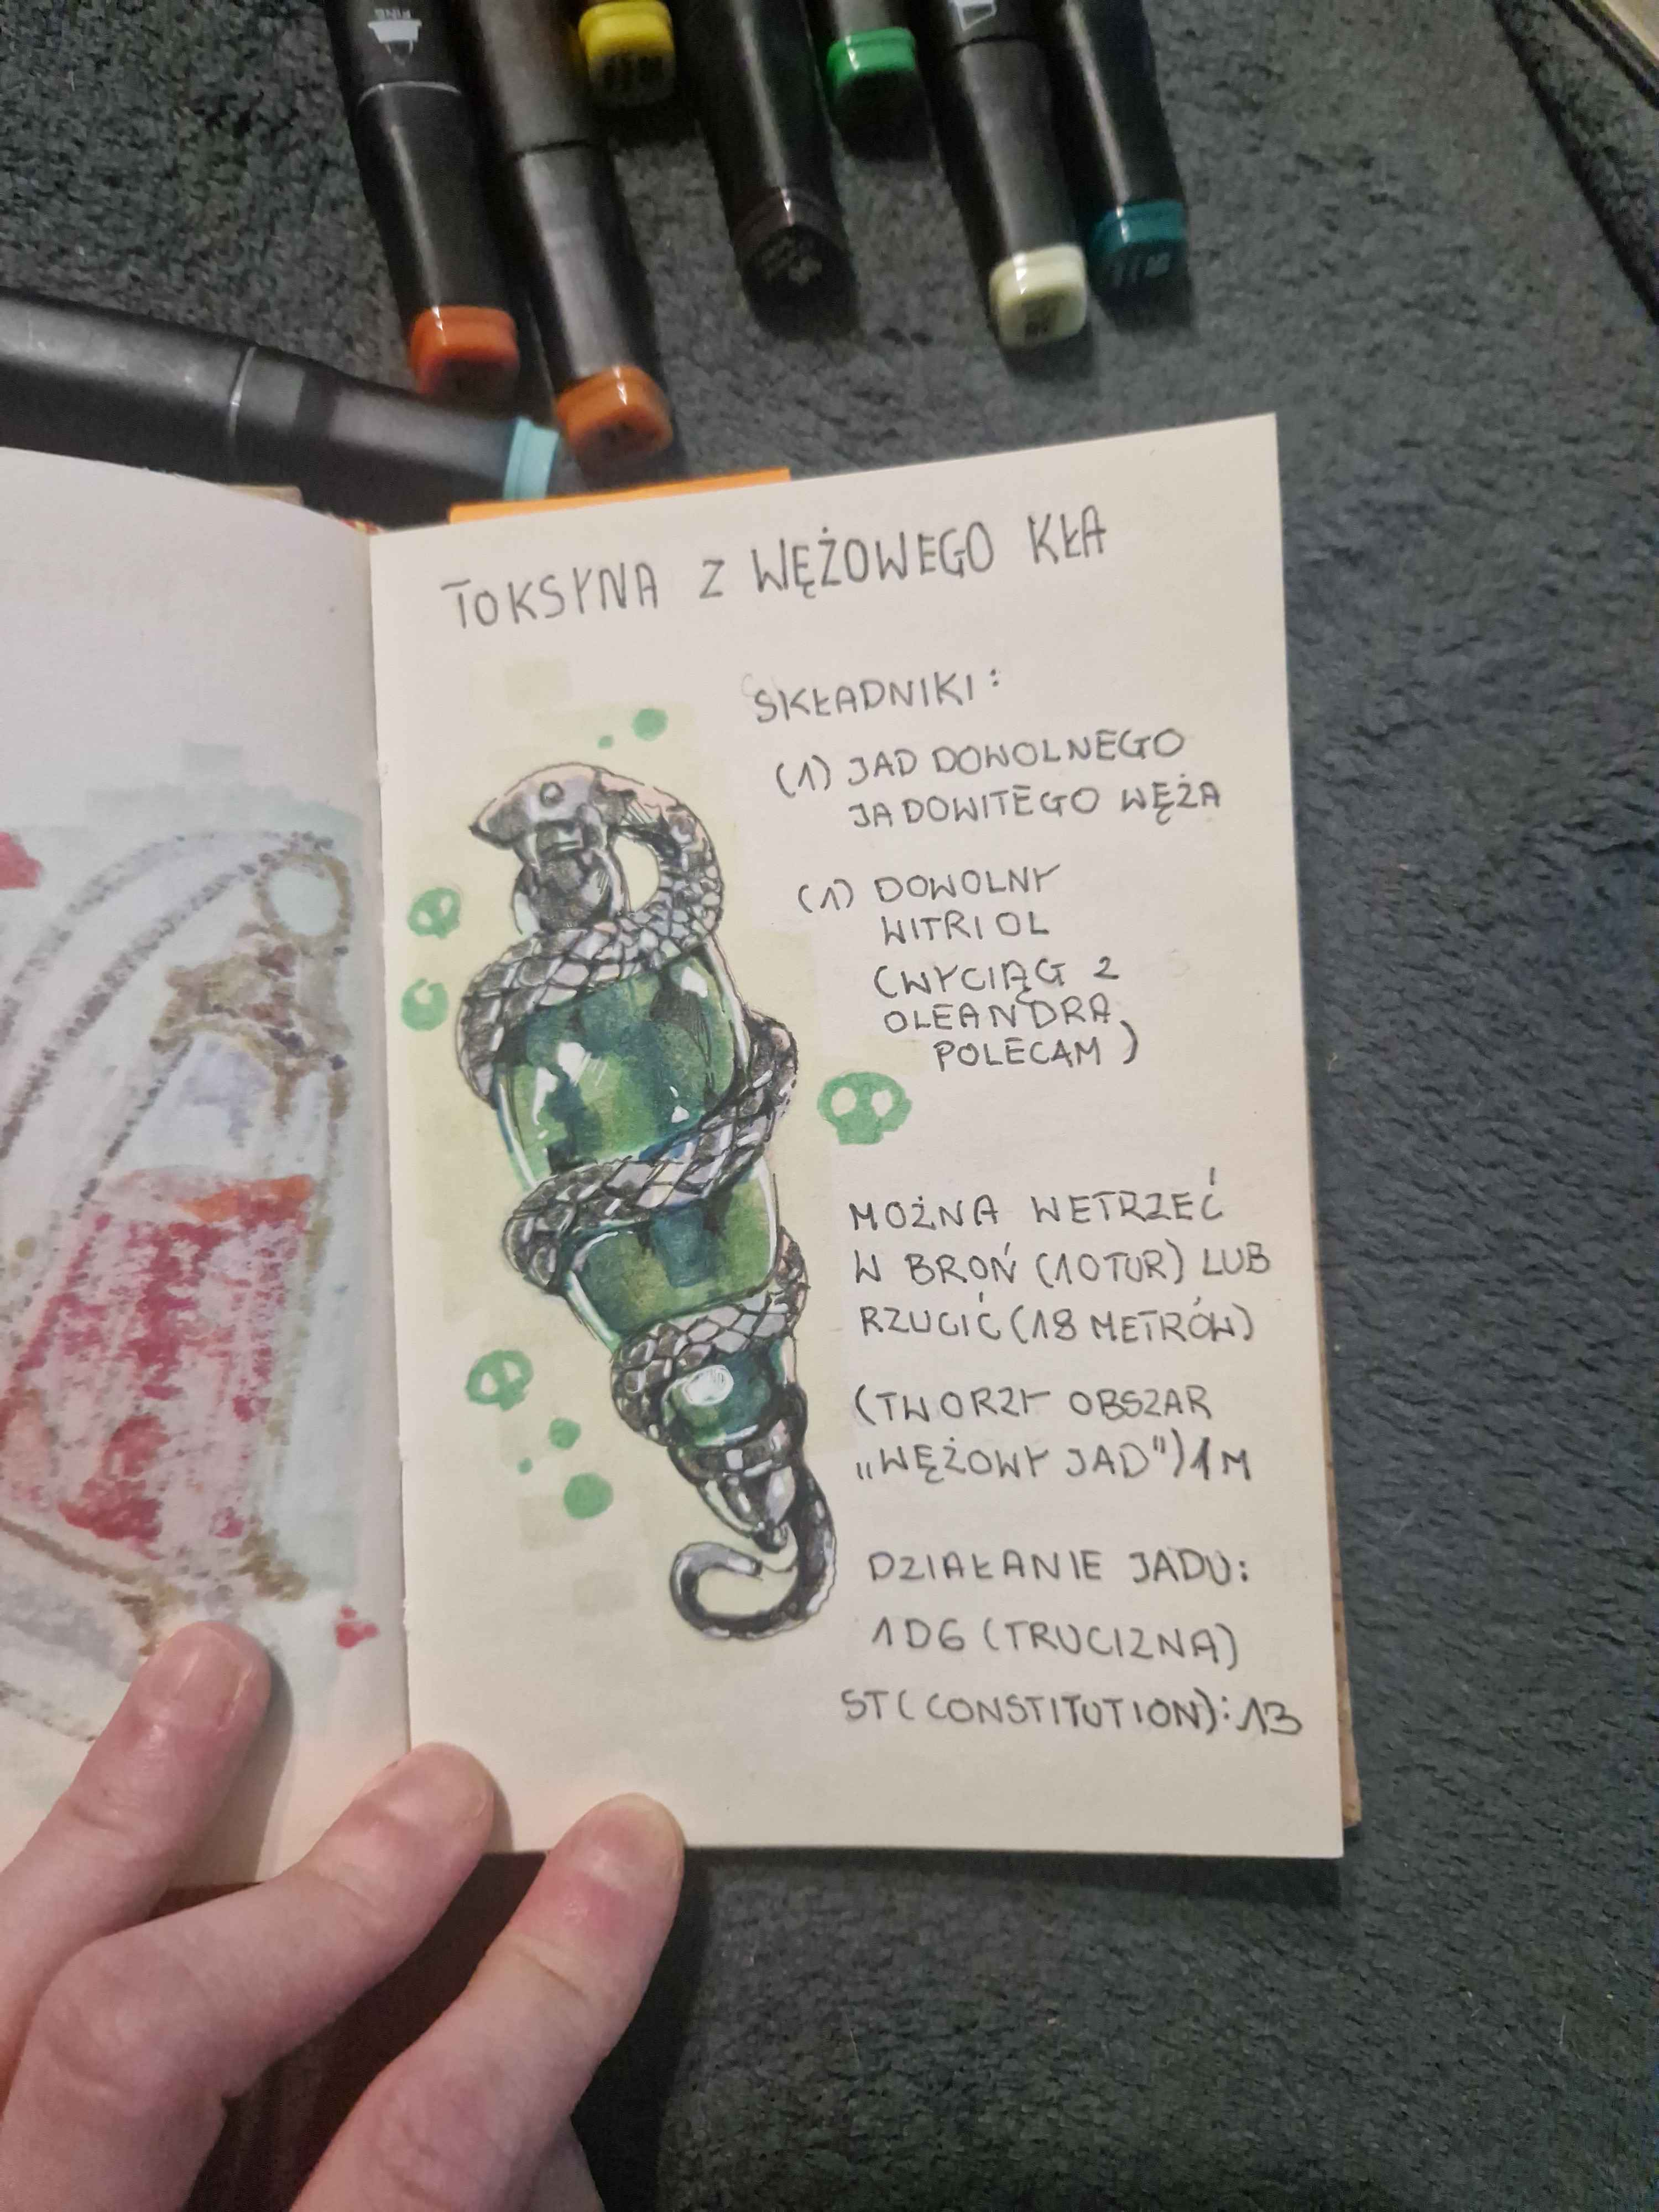 FINE
TOKSYNA Z WĘŻOWEGO KŁA
SKŁADNIKI:
(1) JAD DOWOLNEGO
JADOWITEGO WĘŻA
(1) DOWOLNY
WITRIOL
(WYCIĄG Z
OLEANDRA
POLECAM)
MOŻNA WETRZEĆ
W BROŃ (10 TUR) LUB
RZUCIĆ (18 METRÓW)
(TWORZY OBSZAR
„WĘŻOWY JAD") 1M
DZIAŁANIE JADU:
1D6 (TRUCIZNA)
ST(CONSTITUTION): 13